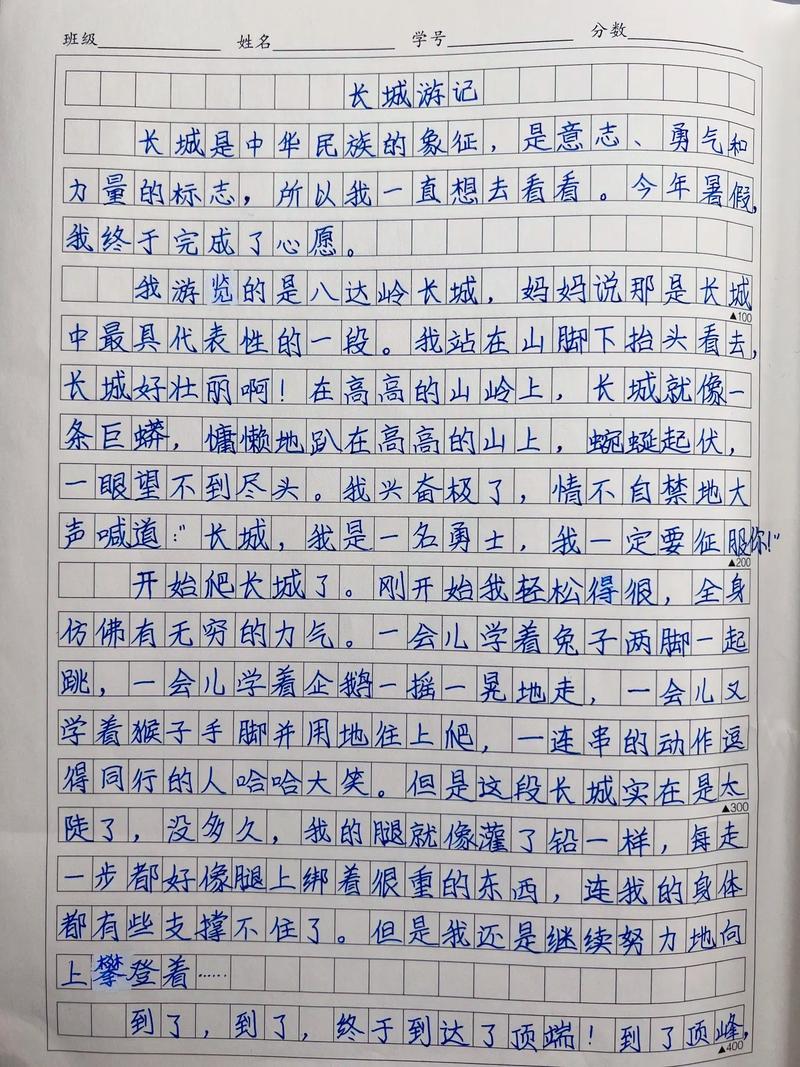 班级 姓名 学号 分数
长城游记
长城是中华民族的象征，是意志、勇气和
力量的标志，所以我一直想去看看。今年暑假，
我终于完成了心愿。
我游览的是八达岭长城，妈妈说那是长城
▲100
中最具代表性的一段。我站在山脚下抬头看去，
长城好壮丽啊！在高高的山岭上，长城就像一
条巨蟒，慵懒地趴在高高的山上，蜿蜒起伏，
一眼望不到尽头。我兴奋极了，情不自禁地大
声喊道：“长城，我是一名勇士，我一定要征服你！”
▲200
开始爬长城了。刚开始我轻松得很，全身
仿佛有无穷的力气。一会儿学着兔子两脚一起
跳，一会儿学着企鹅一摇一晃地走，一会儿又
学着猴子手脚并用地往上爬，一连串的动作逗
得同行的人哈哈大笑。但是这段长城实在是太
▲300
陡了，没多久，我的腿就像灌了铅一样，每走
一步都好像腿上绑着很重的东西，连我的身体
都有些支撑不住了。但是我还是继续努力地向
上攀登着……
到了，到了，终于到达了顶端！到了顶峰，
▲400